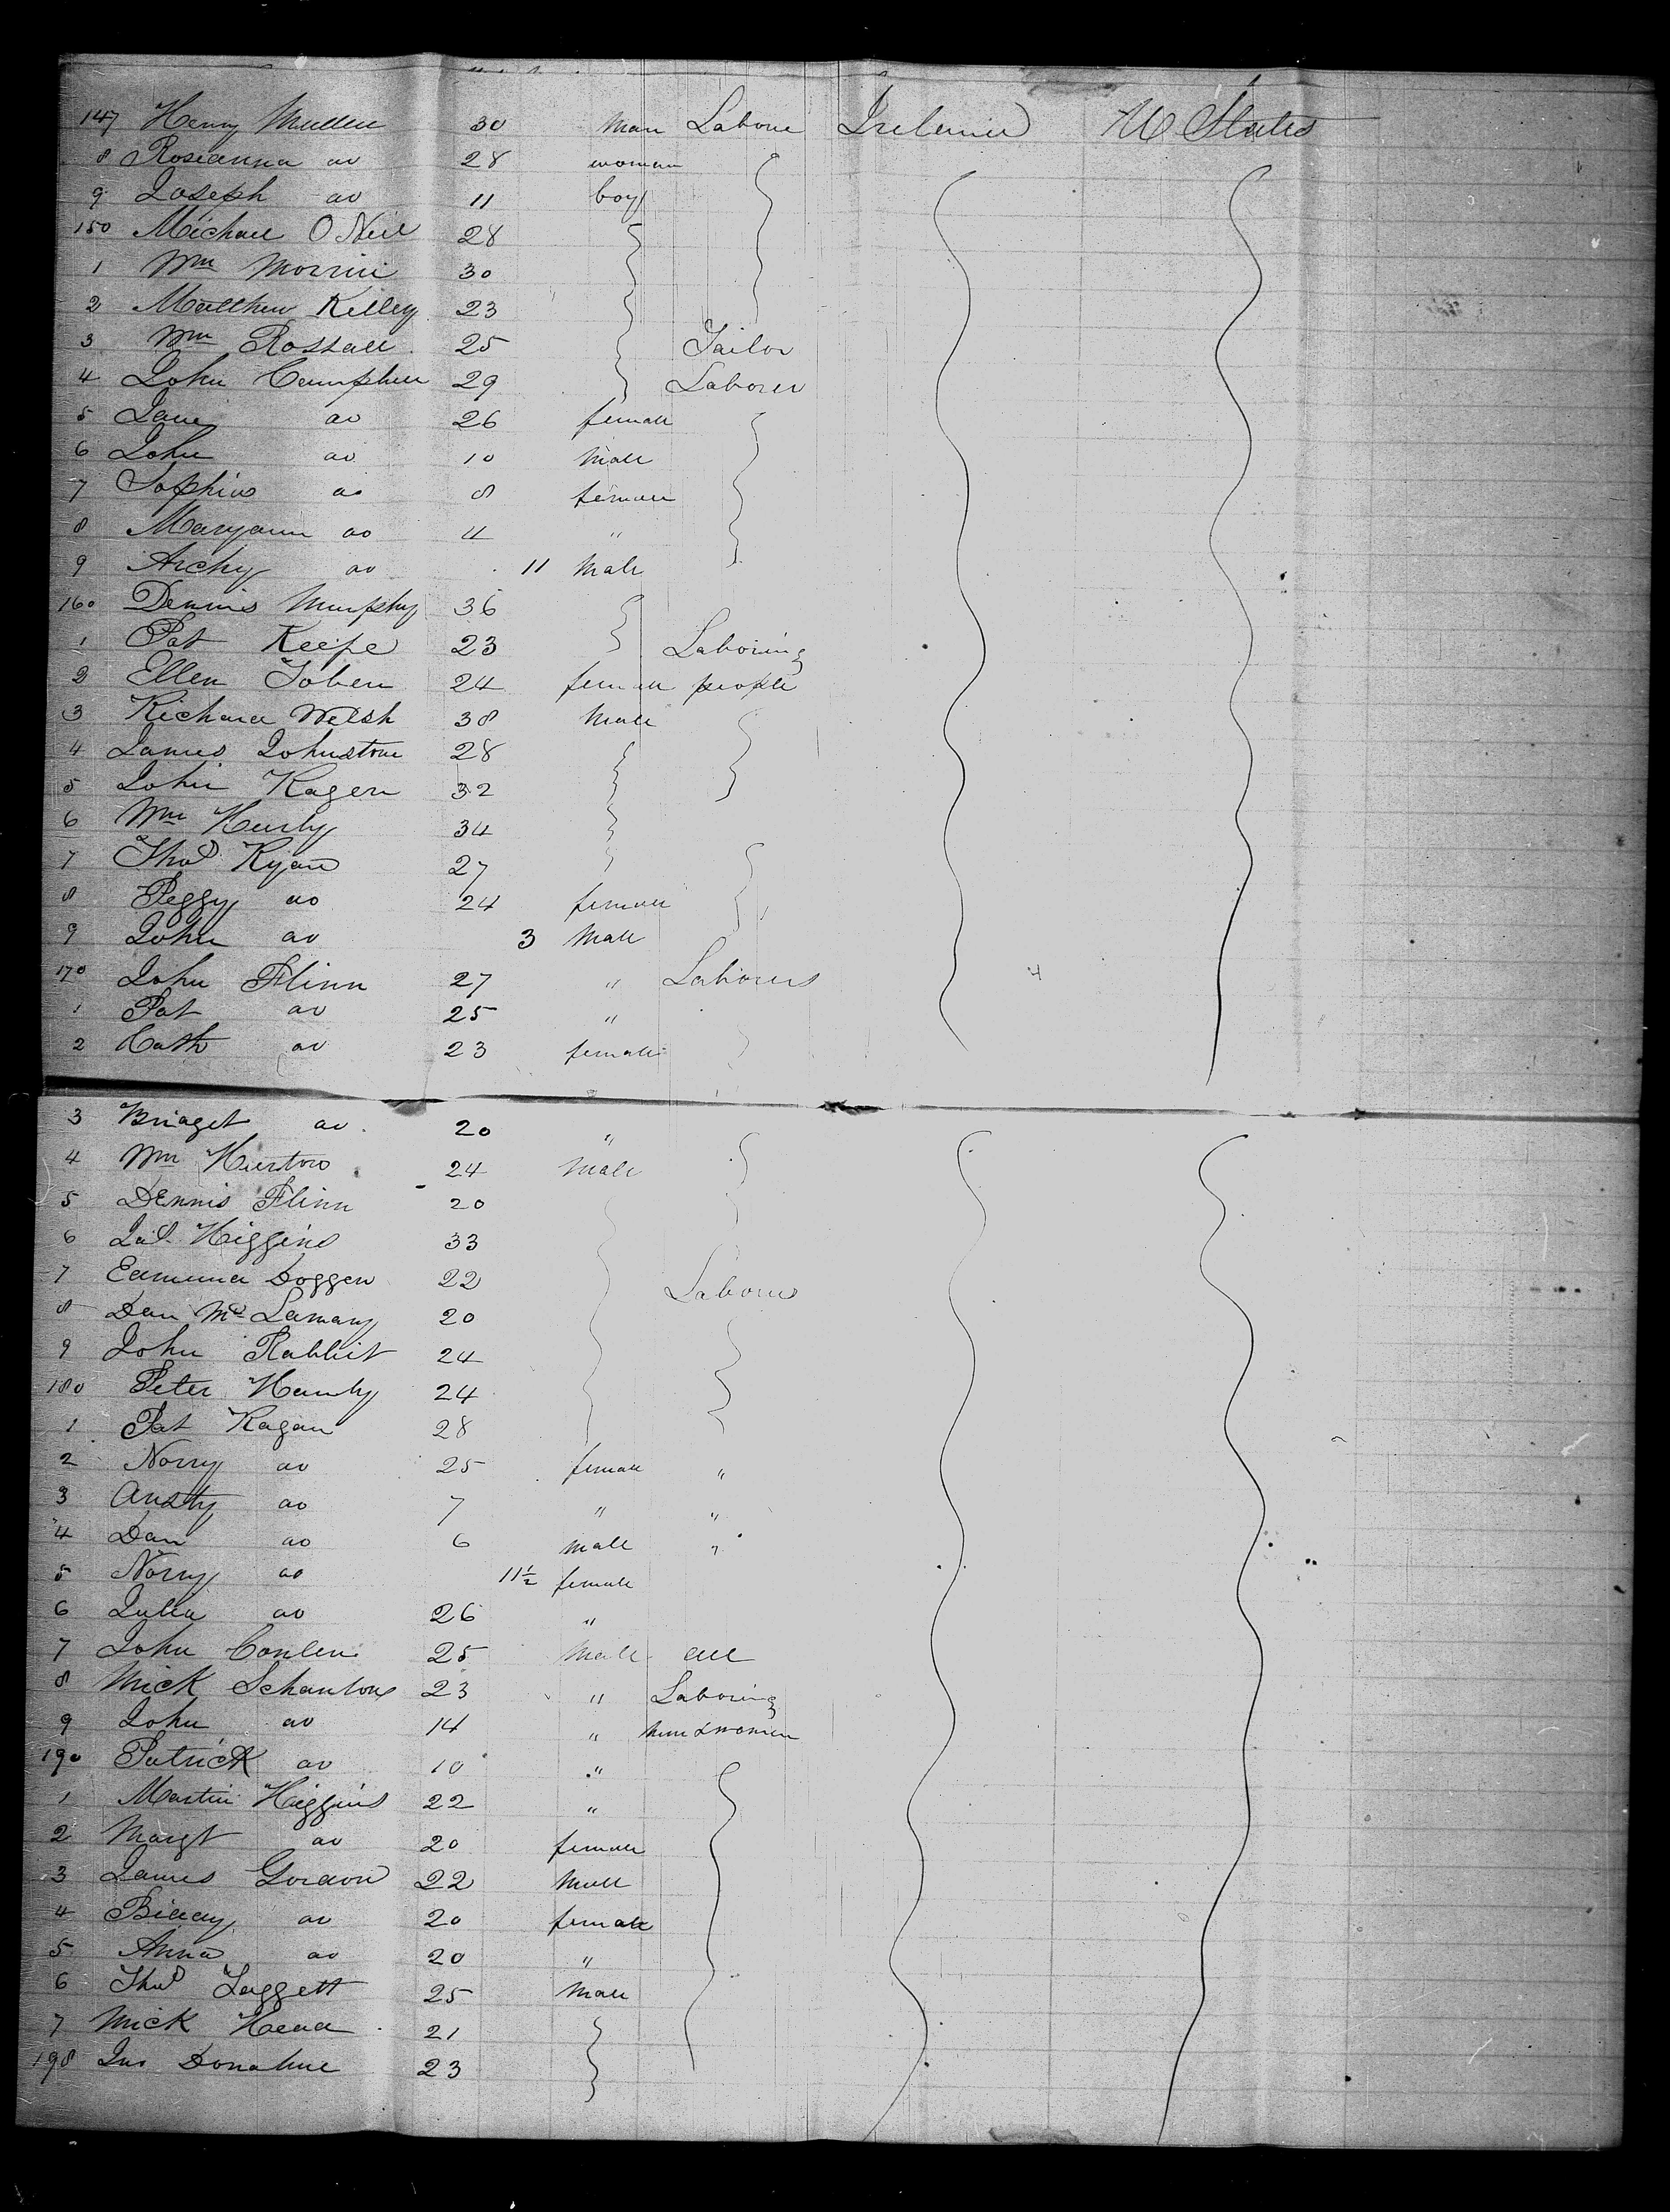 147 Henry Mullen 30 Man Labore Ireland U States
8 Roseanna do 28 woman
9 Joseph do 11 boy
150 Michael O Neil 28
1 Wm Morrin 30
2 Matthew Kelley 23
3 Wm Rossall 25 Tailor
4 John Camphell 29 Laborer
5 Jane do 26 female
6 John do 10 Male
7 Sophia do 8 female
8 Maryann do 4 "
9 Archy do 11 Male
160 Dennis Murphy 36
1 Pat Keefe 23 Laboring
2 Ellen Toben 24 female people
3 Richard Welsh 38 Male
4 James Johnstone 28
5 John Kagen 32
6 Wm Hurly 34
7 Thos Ryan 27
8 Peggy do 24 female
9 John do 3 Male
170 John Flinn 27 " Laborers
1 Pat do 25 "
2 Cath do 23 female
3 Bridget do 20 "
4 Wm Hurton 24 Male
5 Dennis Flinn 20
6 Jas Higgins 33
7 Edmund Doggen 22 Laborers
8 Dan Mc Lamany 20
9 John Rabbit 24
180 Peter Hanly 24
1 Pat Kagan 28
2 Norry do 25 female "
3 Ansty do 7 " "
4 Dan do 6 male "
5 Norry do 11½ female
6 Julia do 26 "
7 John Conlen 25 Male all
8 Mick Schanlone 23 " Laboring
9 John do 14 " men & women
190 Patrick do 10 "
1 Martin Higgins 22 "
2 Margt do 20 female
3 James Gordon 22 Male
4 Biddy do 20 female
5 Anna do 20 "
6 Thos Taggett 25 Male
7 Mick Head 21
198 Jno Donahue 23